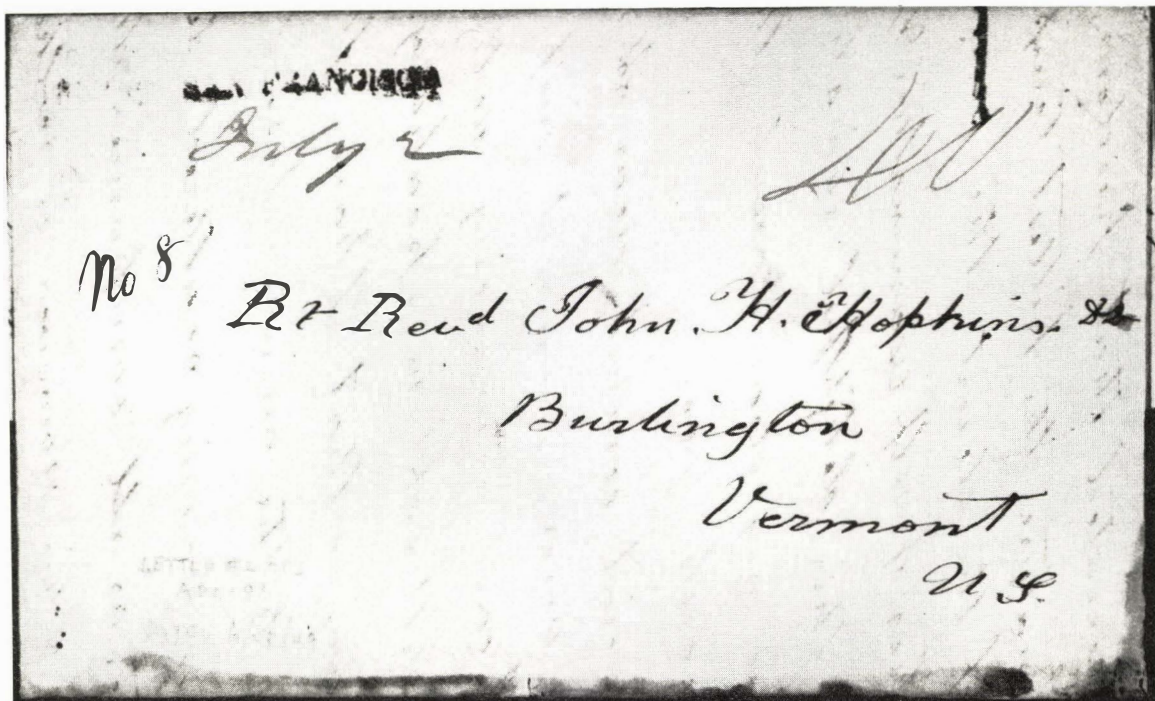 SAN FRANCISCO
July 2
No 8
Rt Revd John. H. Hopkins.
Burlington
Vermont
U S.